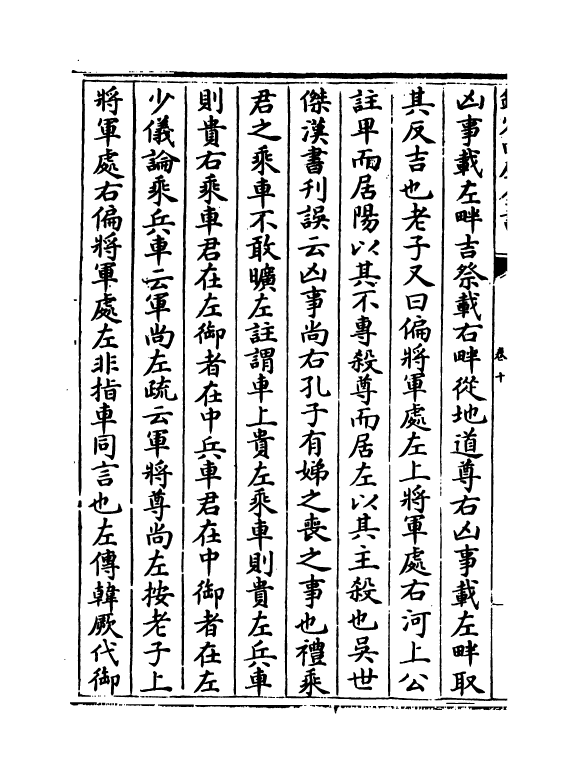 凶事載左畔吉祭載右畔從地道尊右凶事載左畔取
其反吉也老子又曰偏將軍處左上將軍處右河上公
註卑而居陽以其不專殺尊而居左以其主殺也吳世
傑漢書刊誤云凶事尚右孔子有娣之喪之事也禮乘
君之乘車不敢曠左註謂車上貴左乘車則貴左兵車
則貴右乘車君在左御者在中兵車君在中御者在左
少儀論乘兵車云軍尚左疏云軍將尊尚左按老子上
將軍處右偏將軍處左非指車同言也左傳韓厥代御
卷十